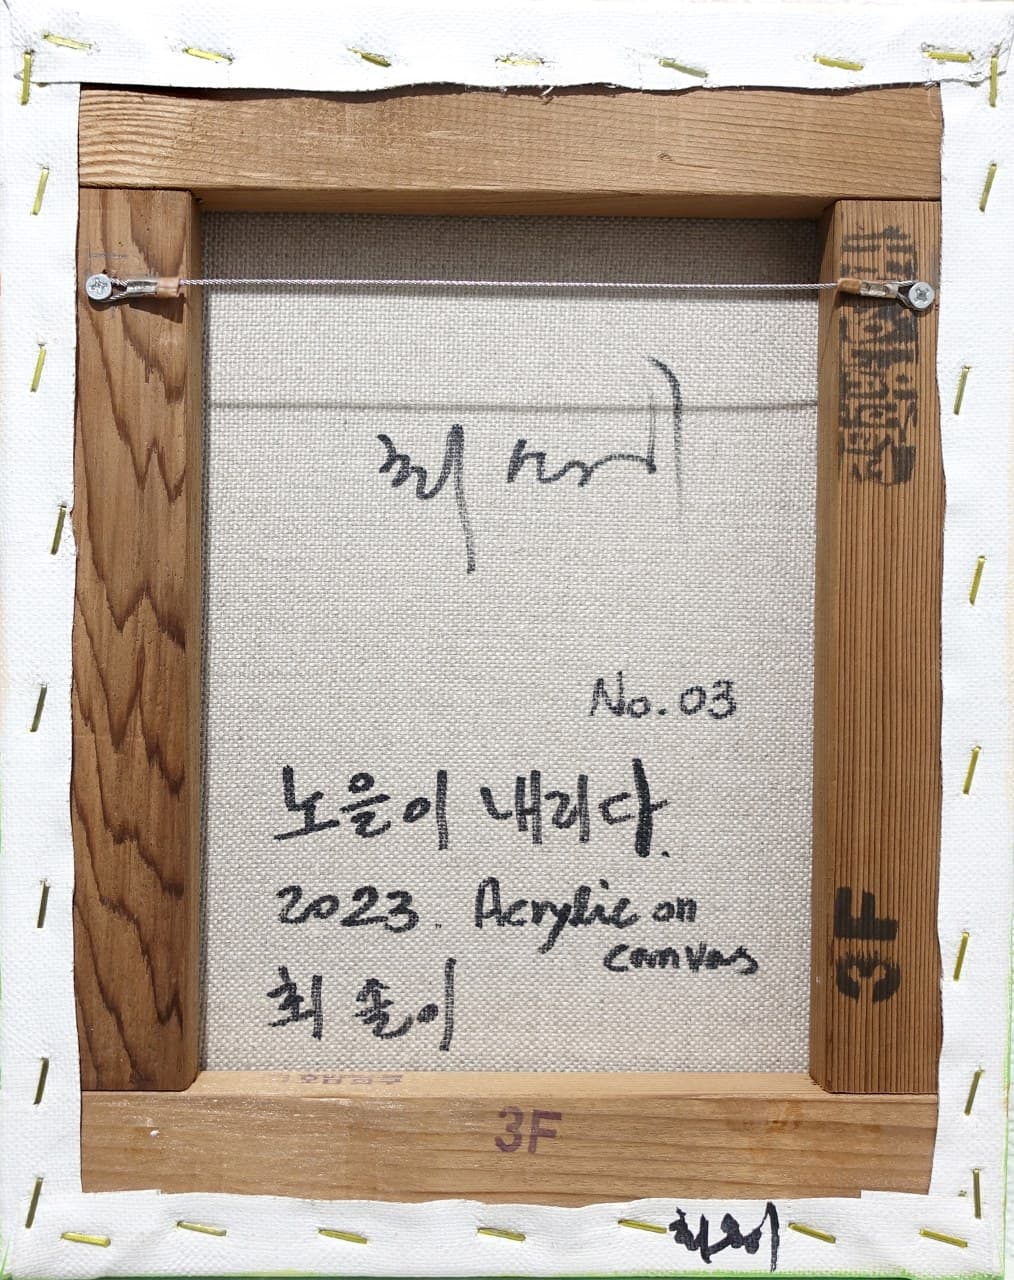 No. 03
노을이 내리다.
2023. Acrylic on
canvas
최솔이
3F
3F